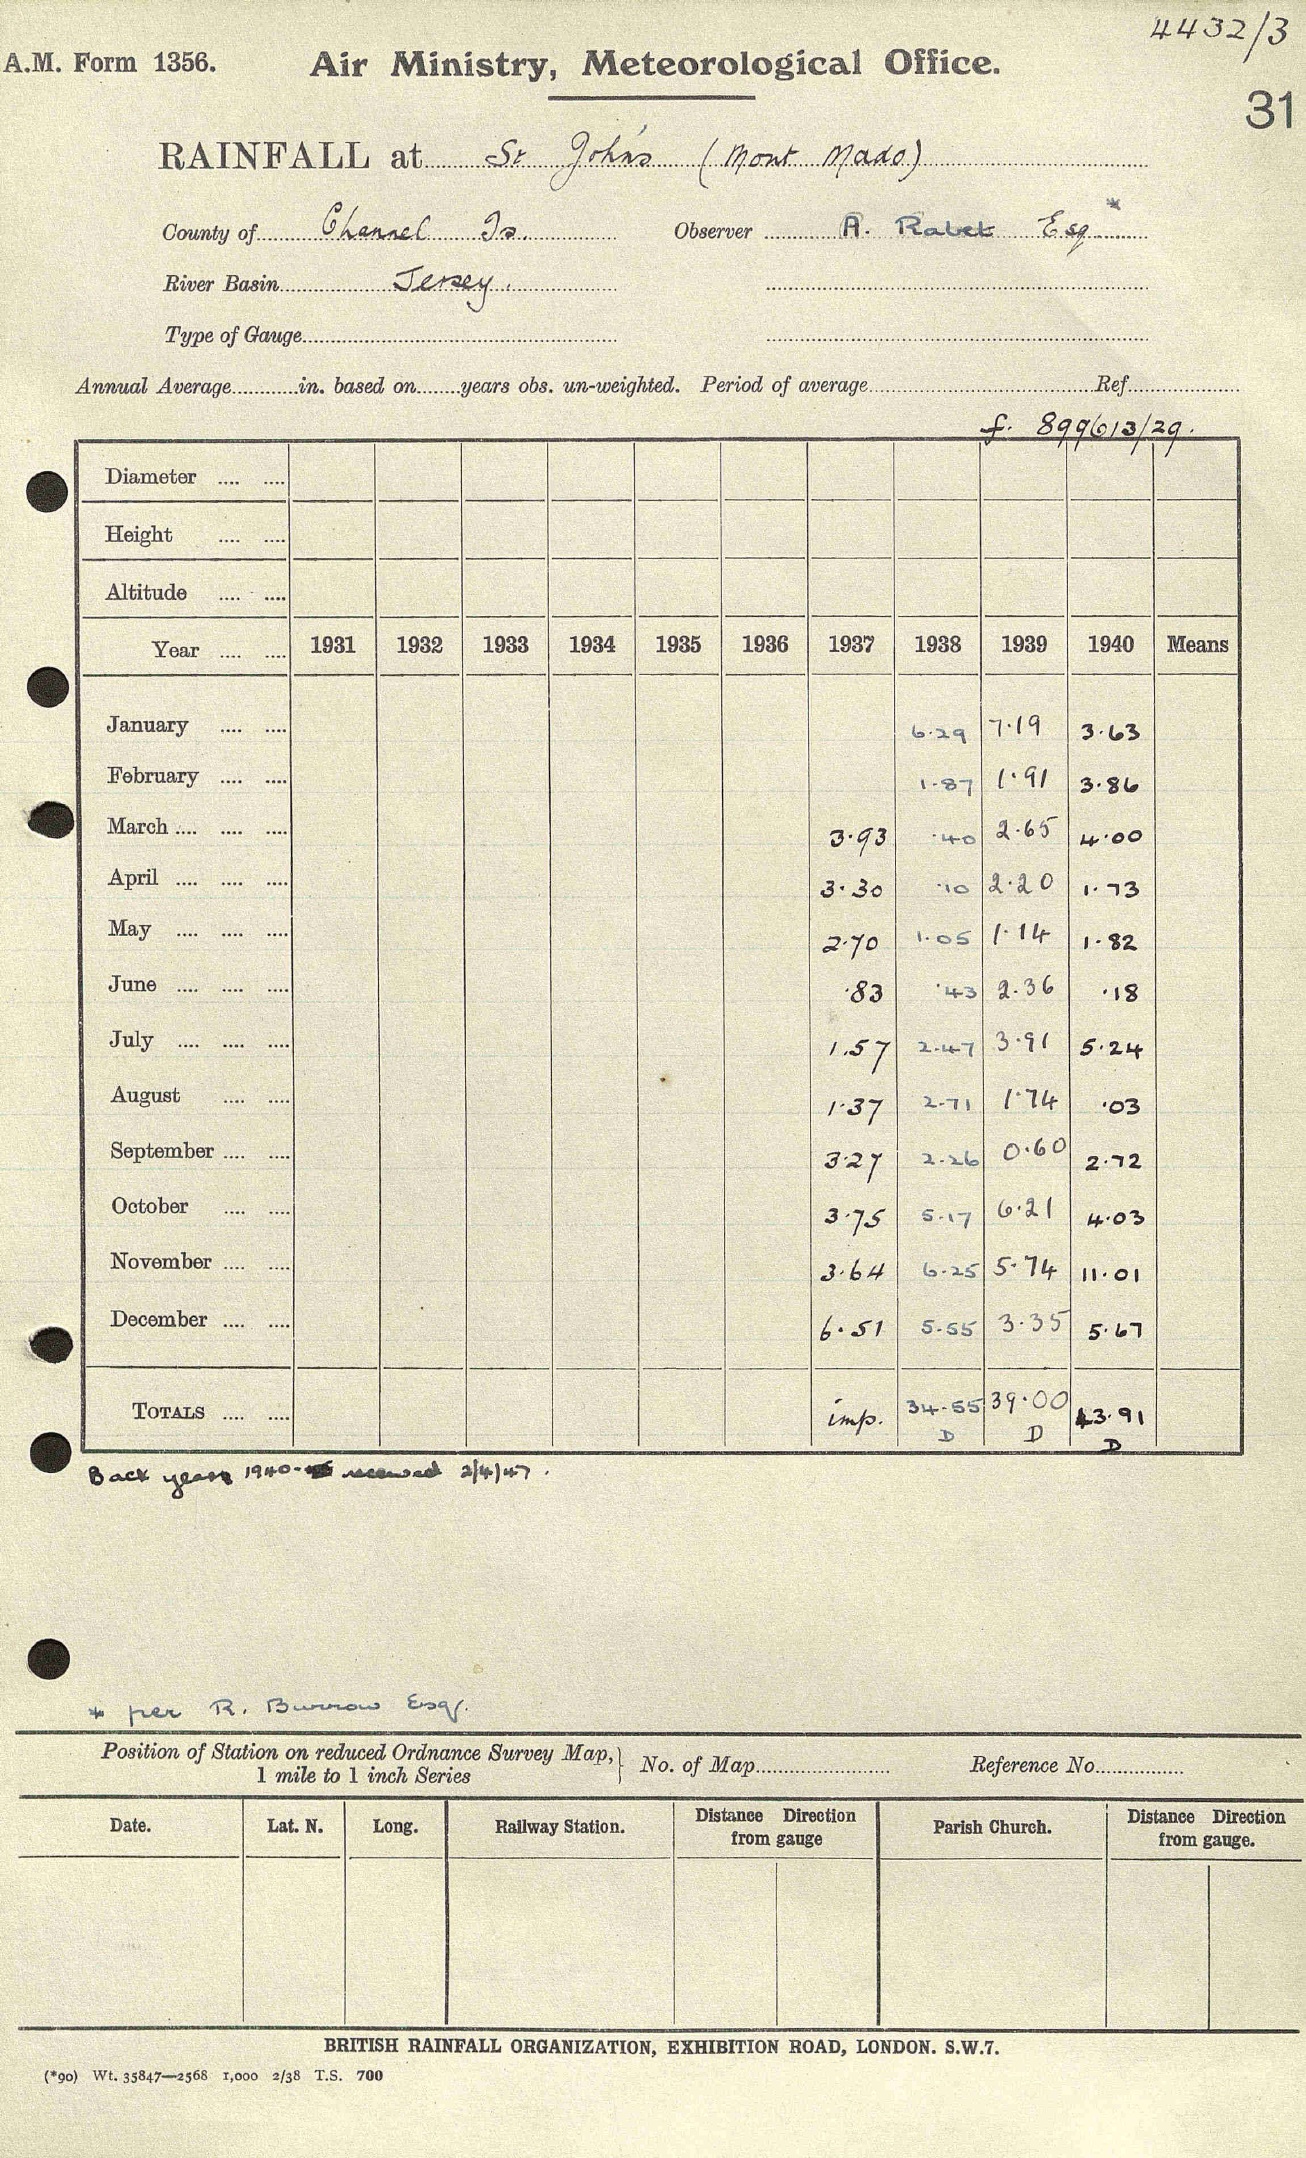 4432/3
A.M. Form 1356. Air Ministry, Meteorological Office.
31
RAINFALL at St John's (Mont Mado)
County of Channel Is. Observer A. Rabet Esq *
River Basin Jersey.
Type of Gauge
Annual Average in. based on years obs. un-weighted. Period of average Ref
f. 899613/29.
Diameter .... ....
Height .... ....
Altitude .... ....
Year .... .... 1931 1932 1933 1934 1935 1936 1937 1938 1939 1940 Means
January .... .... 6.29 7.19 3.63
February .... .... 1.87 1.91 3.86
March .... .... .... 3.93 .40 2.65 4.00
April .... .... .... 3.30 .10 2.20 1.73
May .... .... .... 2.70 1.05 1.14 1.82
June .... .... .... .83 .43 2.36 .18
July .... .... .... 1.57 2.47 3.91 5.24
August .... .... 1.37 2.71 1.74 .03
September .... .... 3.27 2.26 0.60 2.72
October .... .... 3.75 5.17 6.21 4.03
November .... .... 3.64 6.25 5.74 11.01
December .... .... 6.51 5.55 3.35 5.67
TOTALS .... .... imp. 34.55 39.00 43.91
D D D
Back years 1940- received 2/4/47.
* per R. Burrow Esq.
Position of Station on reduced Ordnance Survey Map, } No. of Map Reference No.
1 mile to 1 inch Series
Date. Lat. N. Long. Railway Station. Distance Direction from gauge Parish Church. Distance Direction from gauge.
BRITISH RAINFALL ORGANIZATION, EXHIBITION ROAD, LONDON. S.W.7.
(*90) Wt. 35847—2568 1,000 2/38 T.S. 700